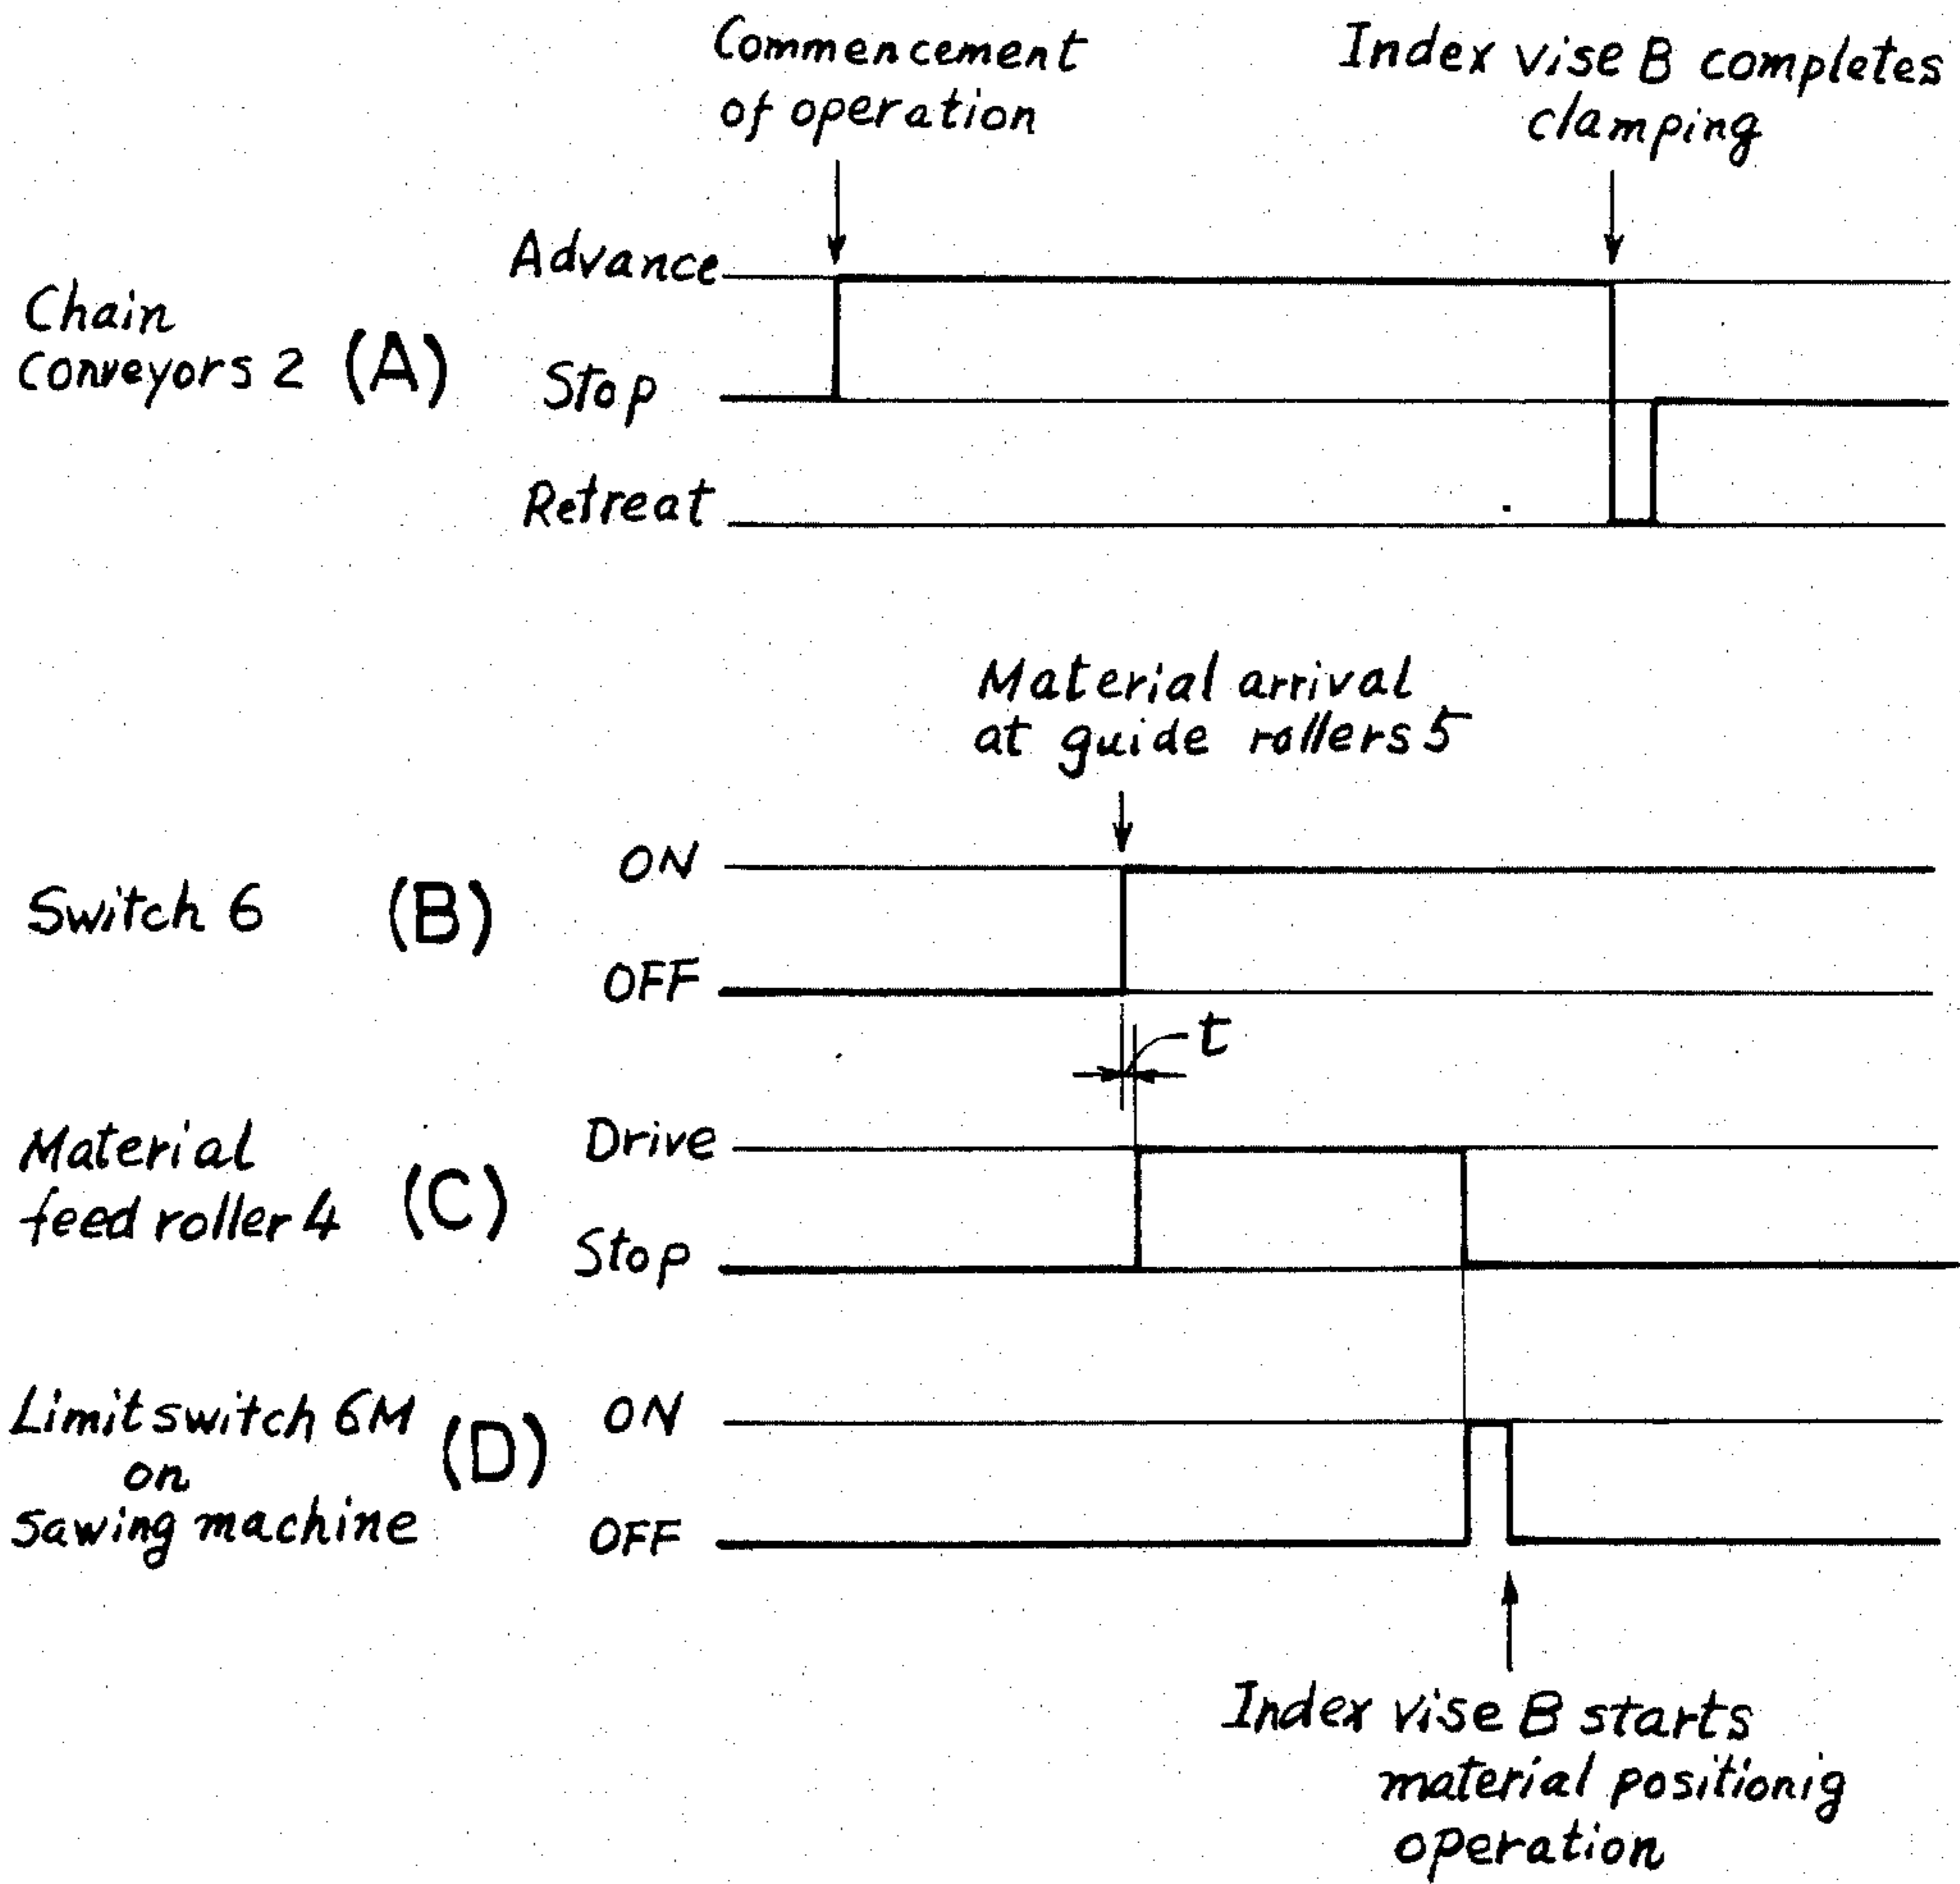 Commencement
of operation
Index vise B completes
clamping
Chain
conveyors 2 (A)
Advance
Stop
Retreat
Material arrival
at guide rollers 5
Switch 6 (B)
ON
OFF
t
Material
feed roller 4 (C)
Drive
Stop
Limit switch 6M
on
sawing machine
(D)
ON
OFF
Index vise B starts
material positionig
operation